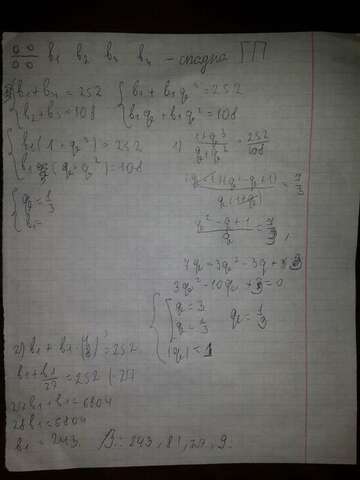 b₁ b₂ b₃ b₄ – спадна ГП
{ b₁+b₄=252
{ b₂+b₃=108
{ b₁+b₁q³=252
{ b₁q+b₁q²=108
{ b₁(1+q³)=252
{ b₁(q+q²)=108
1) (1+q³)/(q+q²) = 252/108
(q+1)(q²-q+1)/(q(1+q)) = 7/3
(q²-q+1)/q = 7/3,
{ q=1/3
{ b₁=
3q²-10q+3=0
[ q=3
[ q=1/3
|q|<1
q=1/3
2) b₁+b₁·(1/3)³=252
b₁+b₁/27=252 |·27
27b₁+b₁=6804
28b₁=6804
b₁=243.
В.: 243, 81, 27, 9.